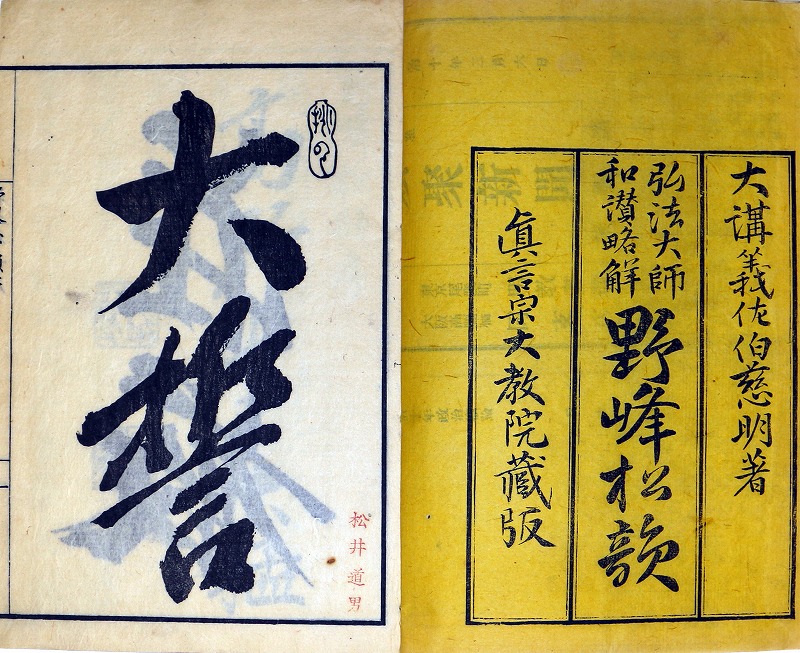 大講義佐伯慈明著
弘法大師
和讃略解
野峰松韻
眞言宗大教院藏版
大誓
松井道男
聚新聞